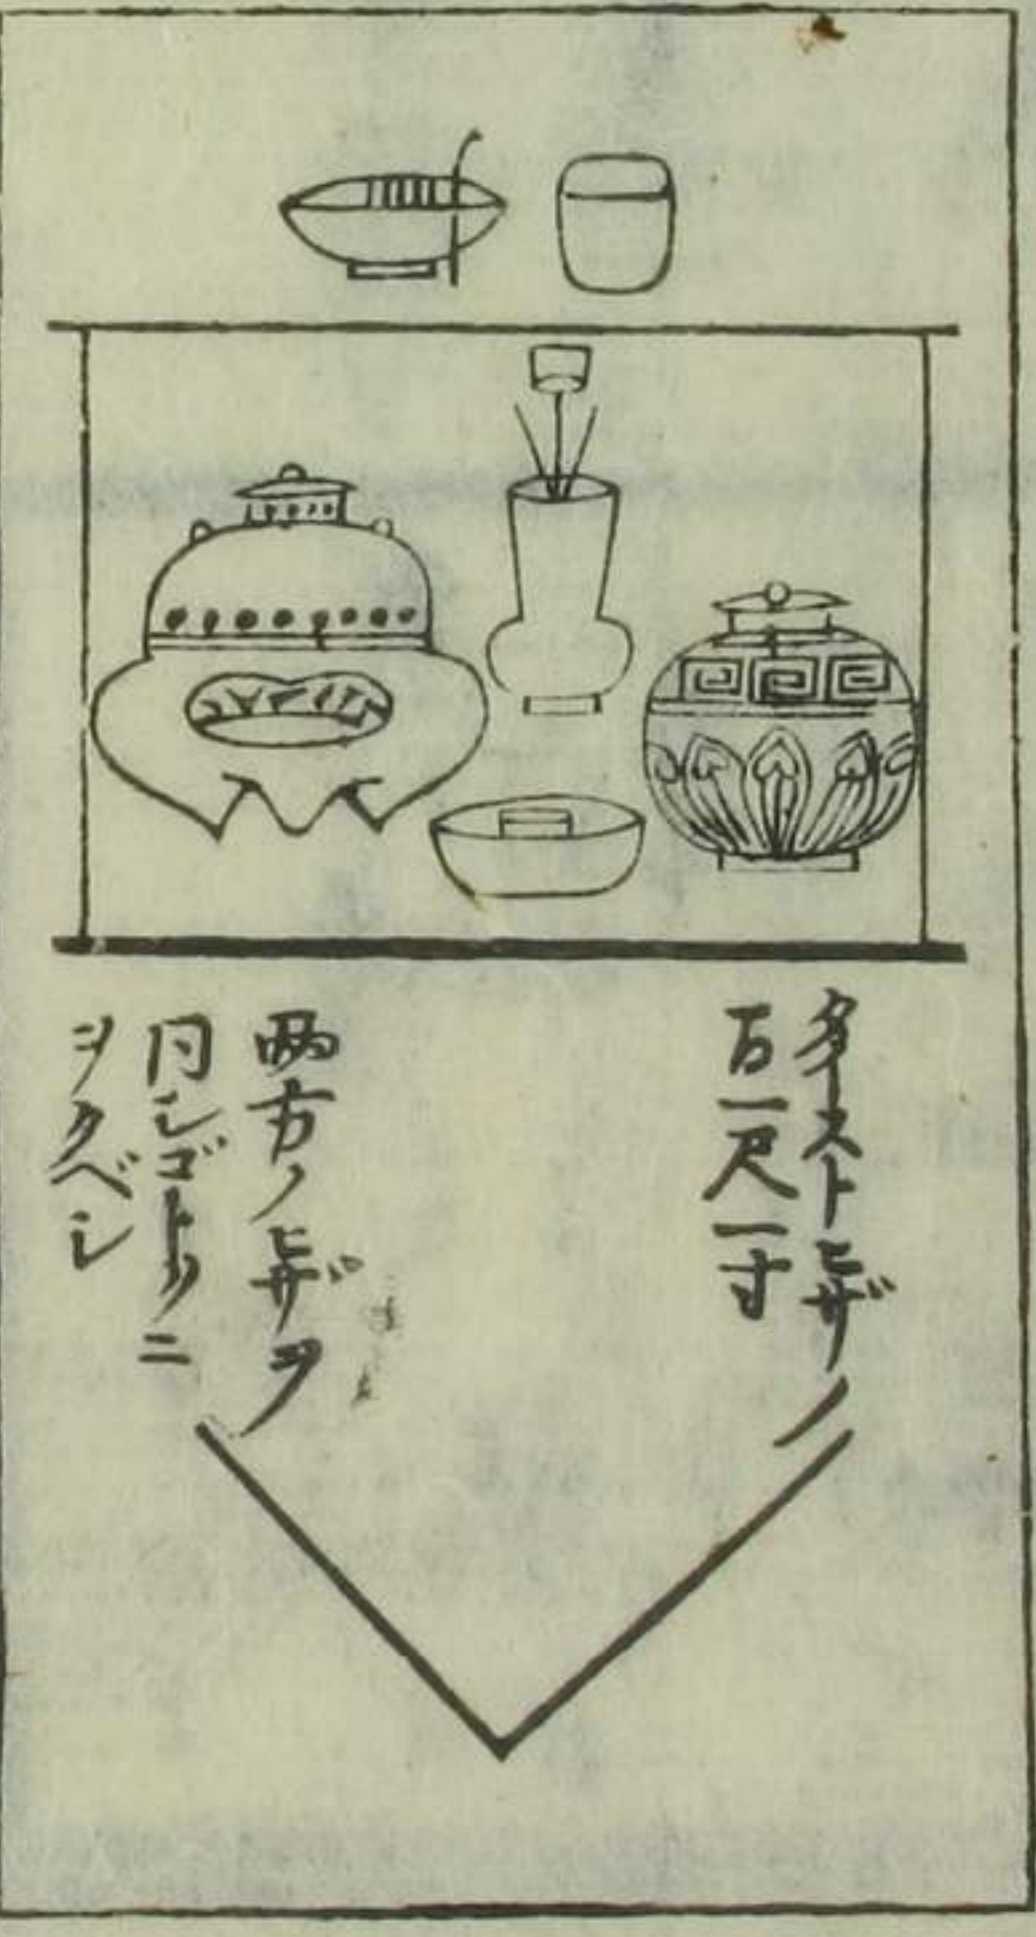 ダイストヒザノ
間一尺一寸
両方ノヒザヲ
同シゴトクニ
ヲクベシ